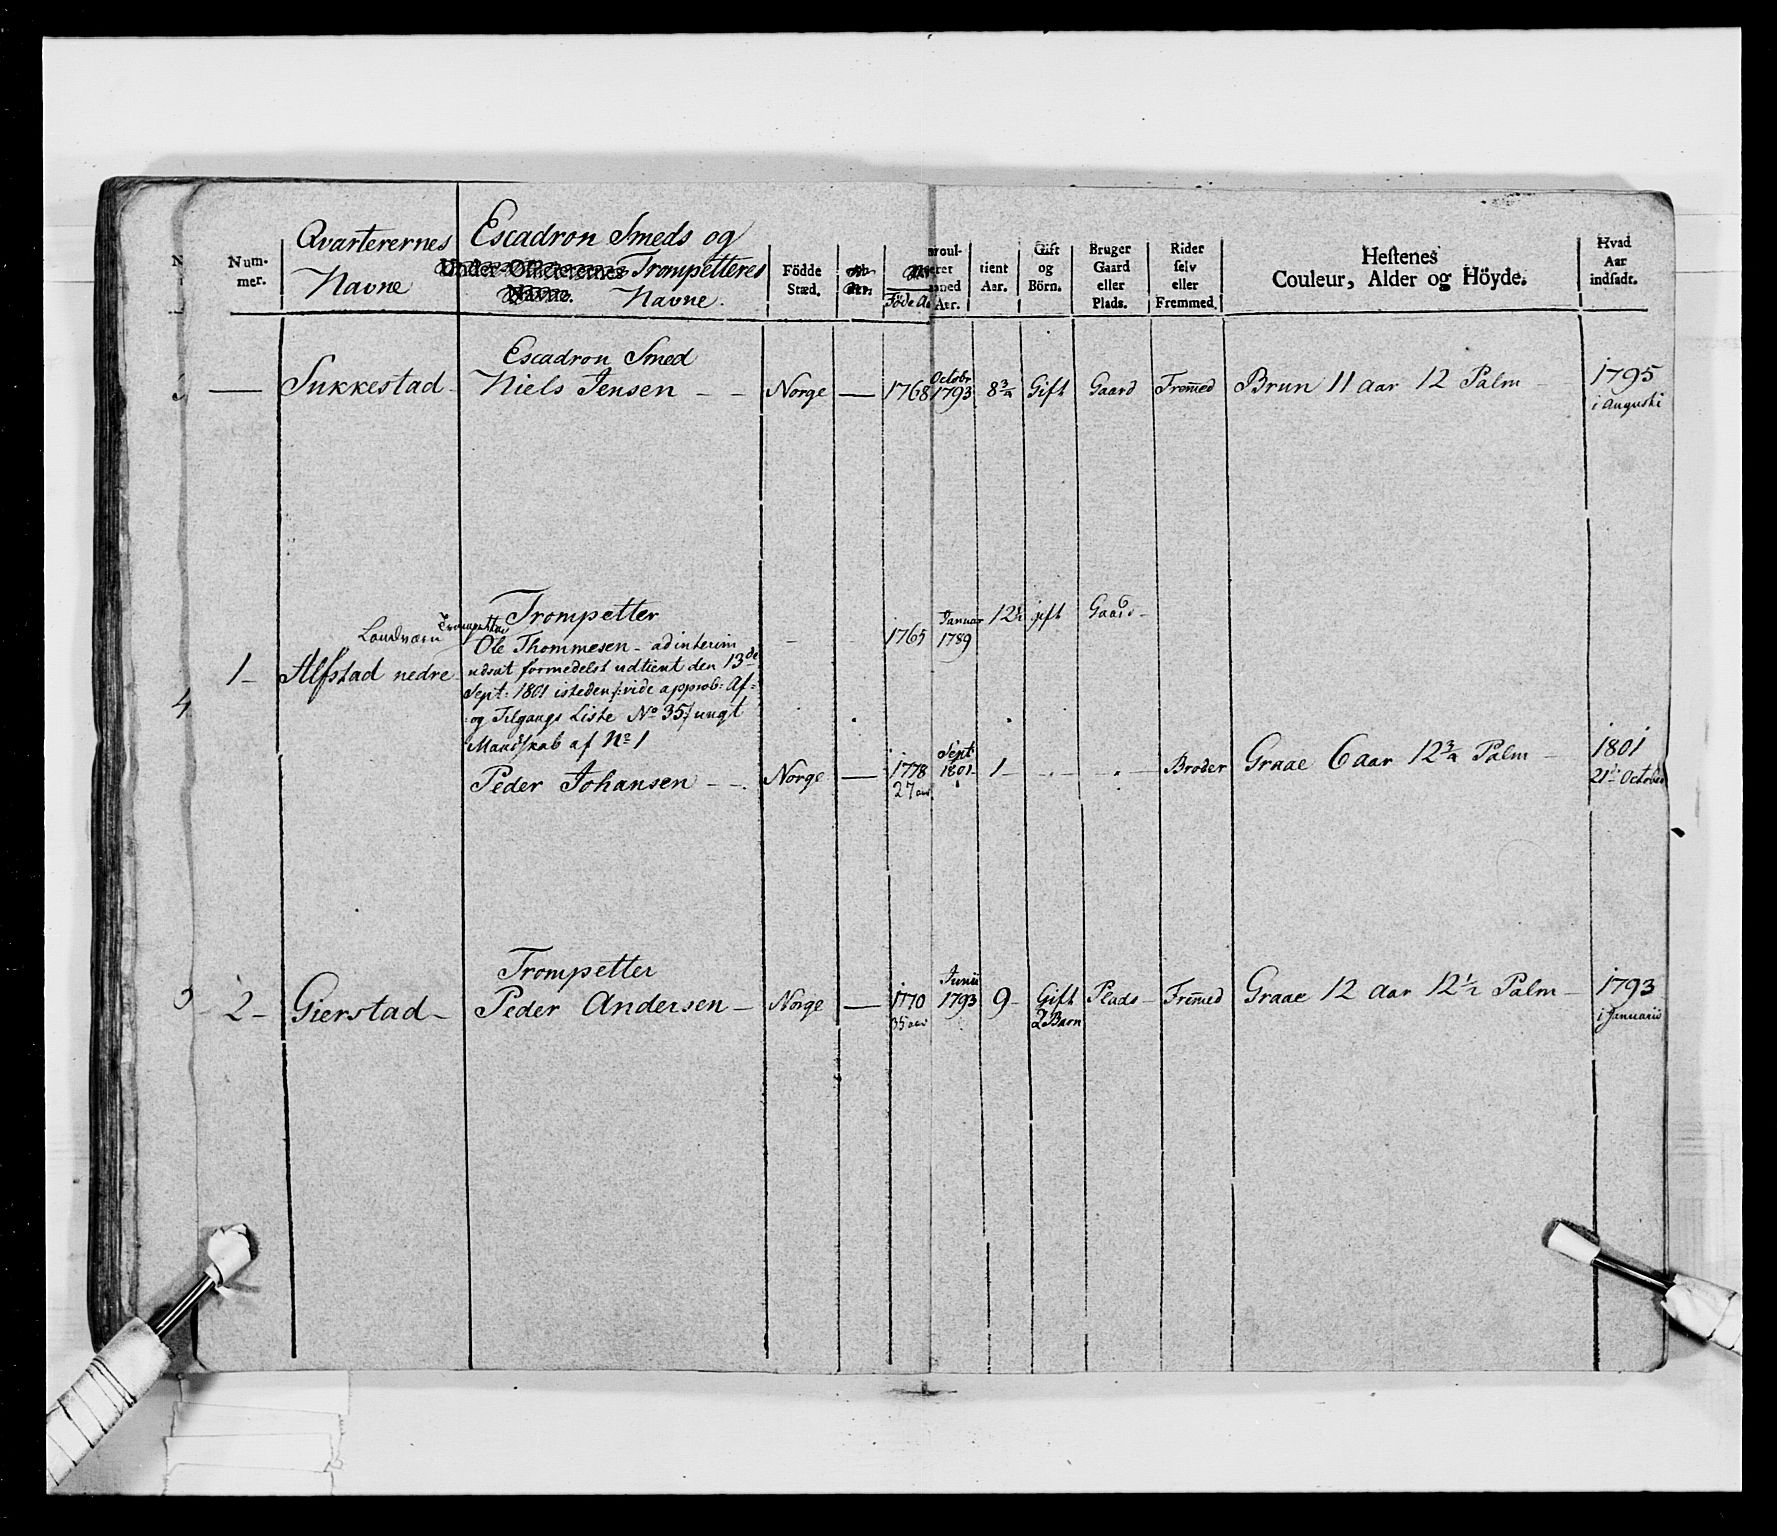 Qvarterernes Escadron Smeds og
Num-mer. Navne Under-Officerernes Trompetteres Navne. Navne. Födde Stæd. Föde Aar. rouleret Aar. tient Aar. Gift og Börn. Bruger Gaard eller Plads. Rider selv eller Fremmed. Hestenes Couleur, Alder og Höyde. Hvad Aar indsadt.
Escadron Smed
— Sukkestad - Niels Jensen - - Norge — 1768 Octobr 1793 8 3/4 Gift Gaard Fremed Brun 11 aar 12 Palm - 1795
i Augusti
Trompetter
Landværn Trompetter
Ole Thommesen - ad interim 1765 Januar 1789 12 1/2 gift Gaard -
1 - Alfstad nedre - udsat formedelst udtient den 13de
4
Sept: 1801 isteden /: vide approb: Af-
og Tilgangs Liste No 35 :/ ungt
Mandskab af No 1
Peder Johansen - - Norge — 1778 Sept 1801 1 - - - Broder Graae 6 aar 12 3/4 Palm - 1801
27 aar 21de October
Trompetter
2 - Gierstad - Peder Andersen - Norge — 1770 Junii 1793 9 - Gift Plads - Fremed Graae 12 aar 12 1/2 Palm - 1793
35 aar 2 Barn i Januarii